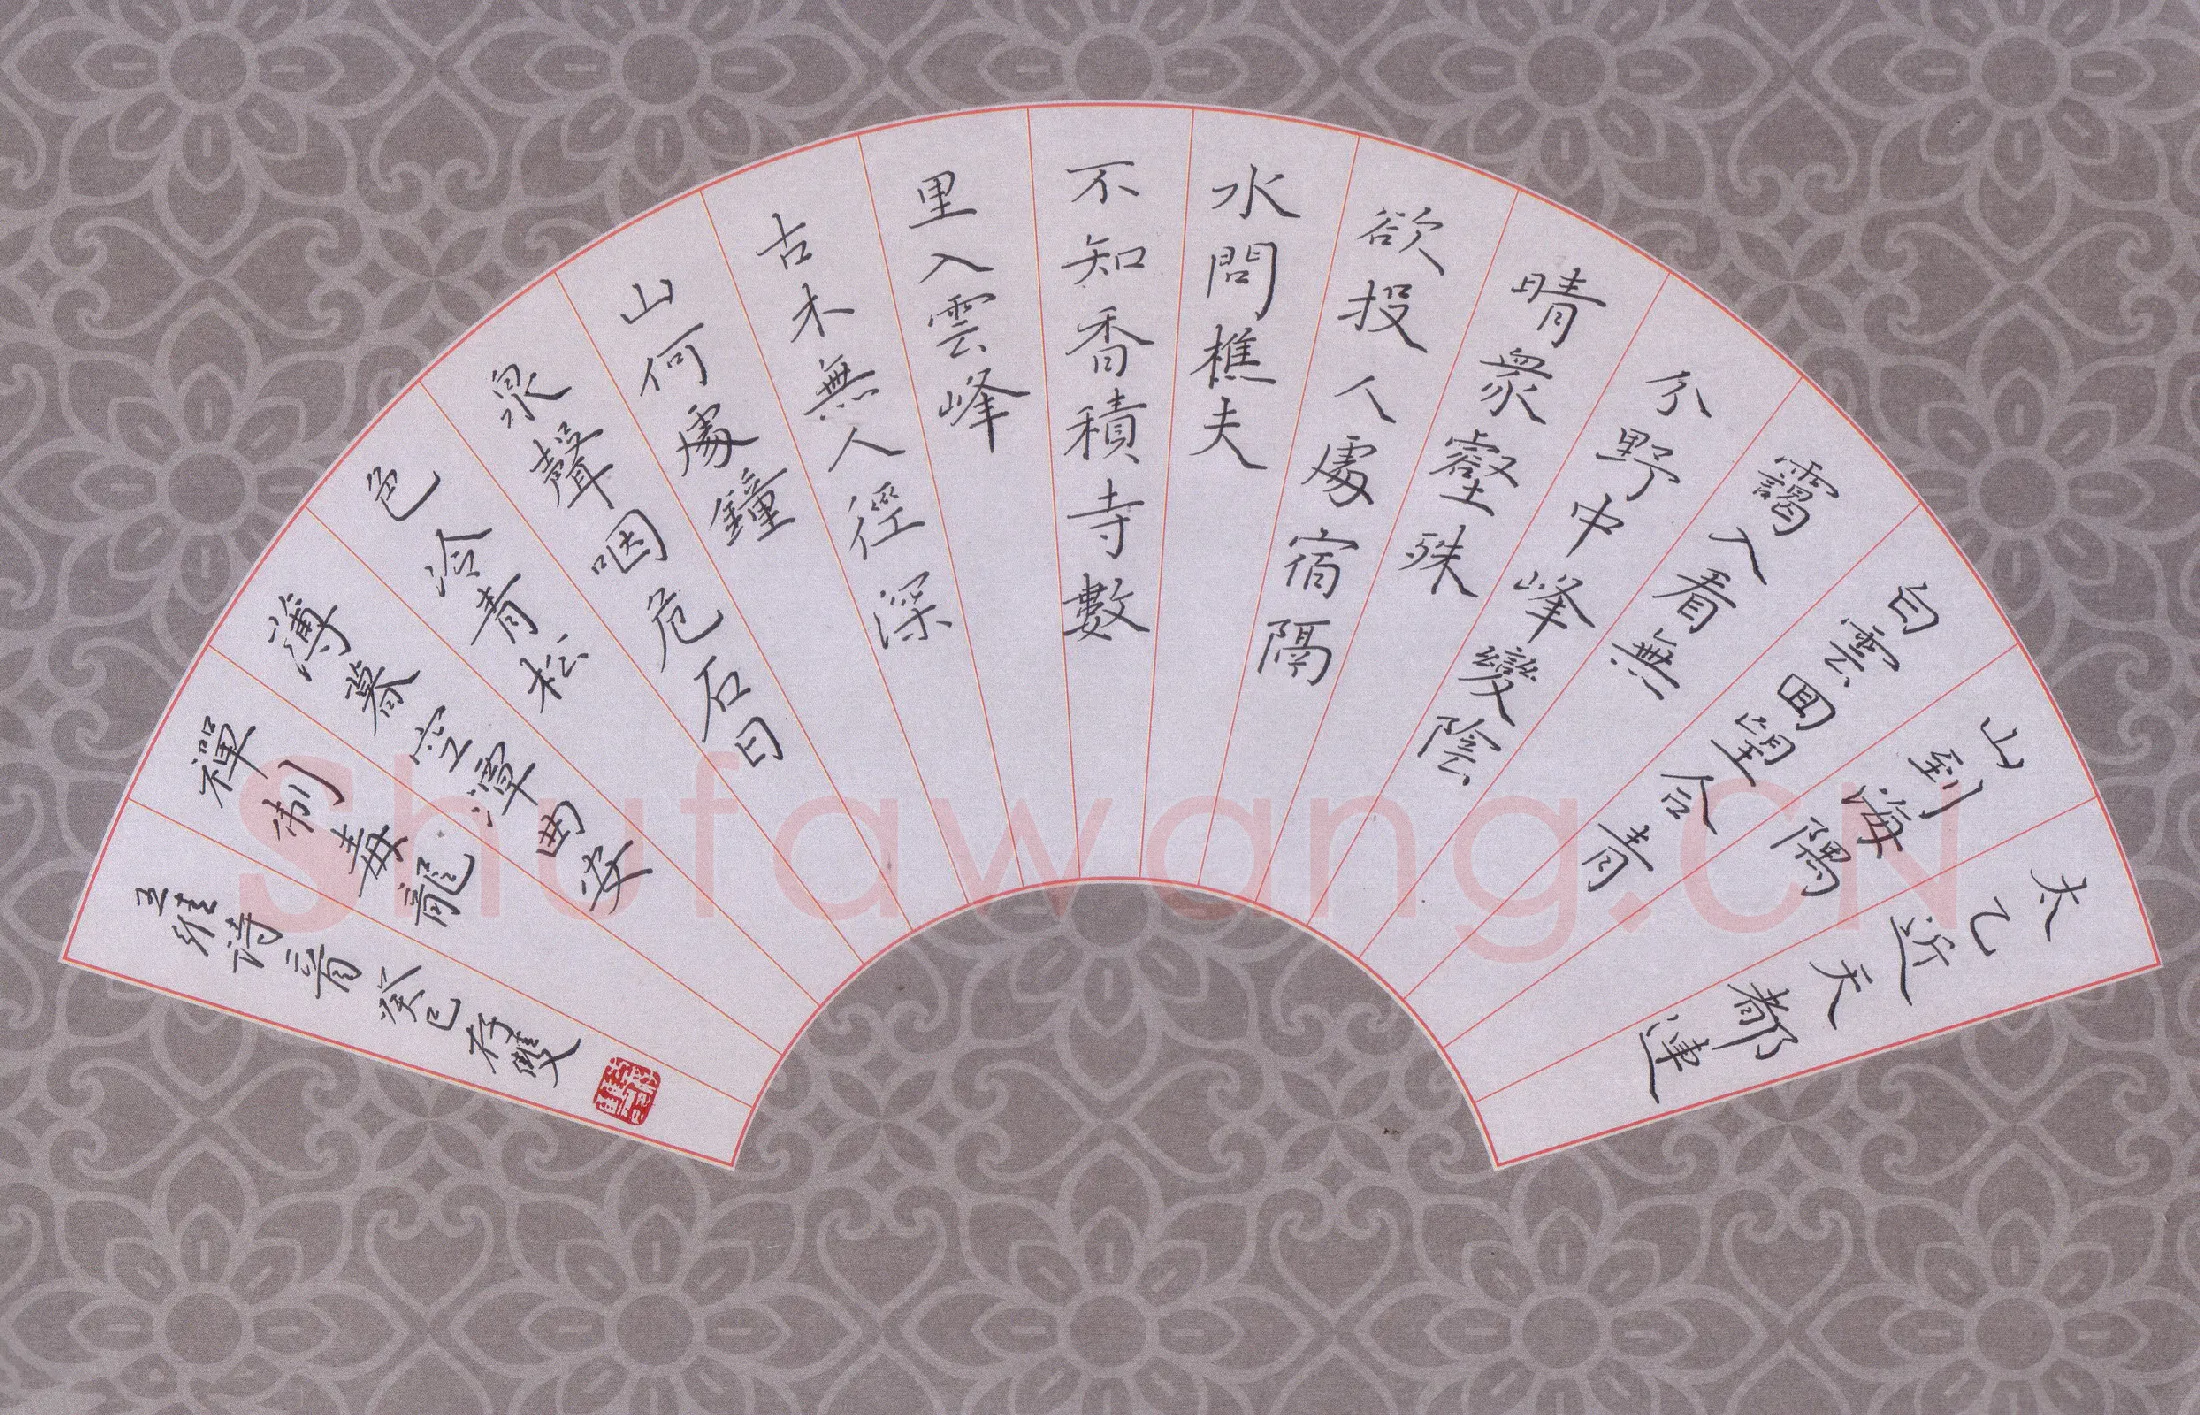 太乙近天都連
山到海隅
白雲回望合青
靄入看無
分野中峰變陰
晴眾壑殊
欲投人處宿隔
水問樵夫
不知香積寺數
里入雲峰
古木無人徑深
山何處鐘
泉聲咽危石日
色冷青松
薄暮空潭曲安
禪制毒龍
王維詩二首癸巳存雙
Shufawang.CN